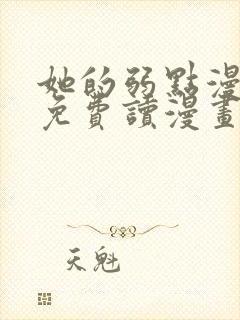 她的弱點漫
免費讀漫畫
天魁